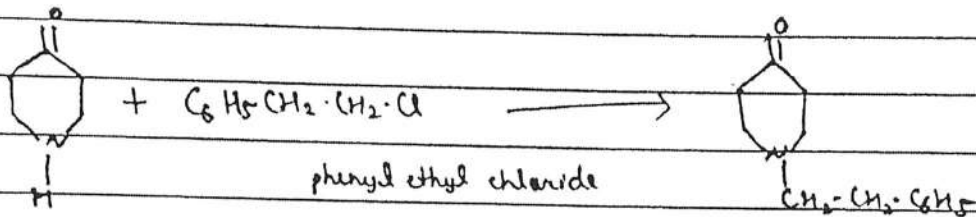 O O
+ C6H5CH2·CH2·Cl
N N
H phenyl ethyl chloride CH2-CH2·C6H5